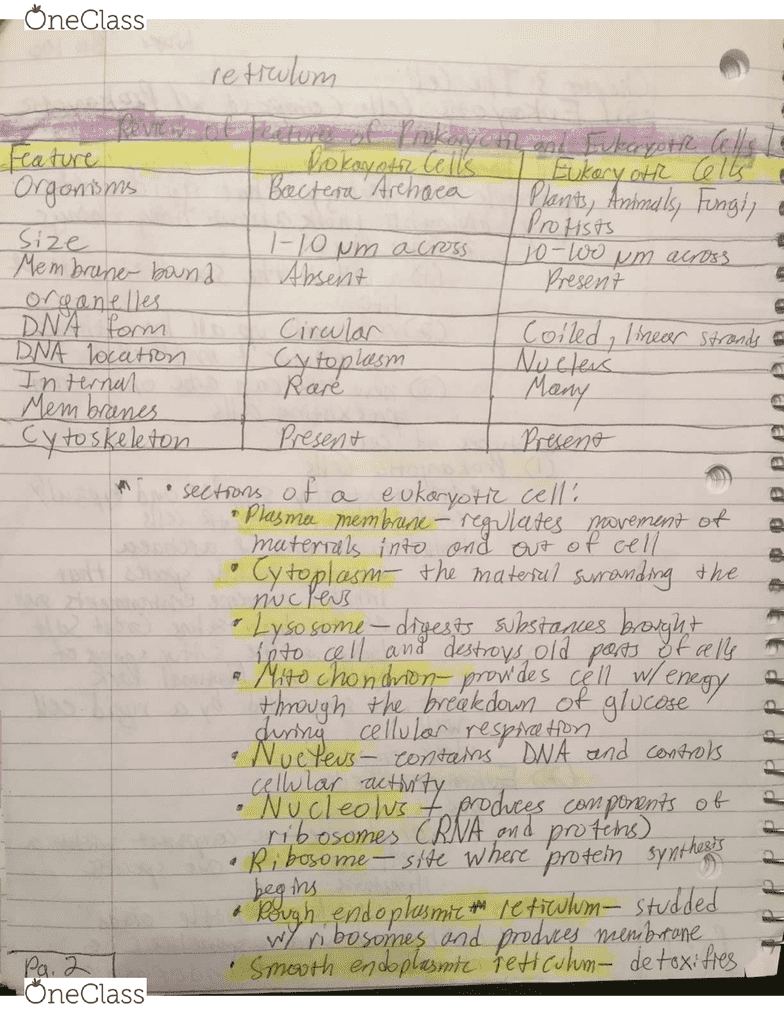 OneClass
reticulum
Review of Features of Prokaryotic and Eukaryotic Cells
Feature Prokaryotic Cells Eukaryotic Cells
Organisms Bactera Archaea Plants, Animals, Fungi,
Protists
Size 1-10 μm across 10-100 μm across
Membrane-bound Absent Present
organelles
DNA form Circular Coiled, linear strands
DNA location Cytoplasm Nucleus
Internal Rare Many
Membranes
Cytoskeleton Present Present
• sections of a eukaryotic cell:
• Plasma membrane - regulates movement of
materials into and out of cell
• Cytoplasm - the material surranding the
nucleus
• Lysosome - digests substances brought
into cell and destroys old parts of cells
• Mitochondrion - provides cell w/ energy
through the breakdown of glucose
during cellular respiration
• Nucleus - contains DNA and controls
cellular activity
• Nucleolus - produces components of
ribosomes (RNA and proteins)
• Ribosome - site where protein synthesis
begins
• Rough endoplasmic reticulum - studded
w/ ribosomes and produces membrane
• Smooth endoplasmic reticulum - detoxifies
Pg. 2
OneClass